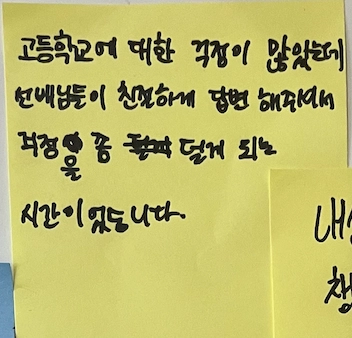 고등학교에 대한 걱정이 많았는데
선배님들이 친절하게 답변 해주셔서
걱정을 좀 덜게 되는
시간이었습니다.
내
챙